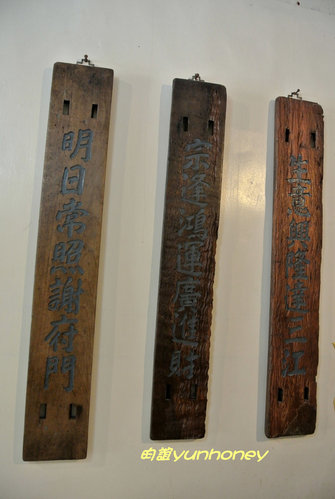 生意興隆達三江
宗逢鴻運廣進財
明日常照謝府門
昀誼yunhoney